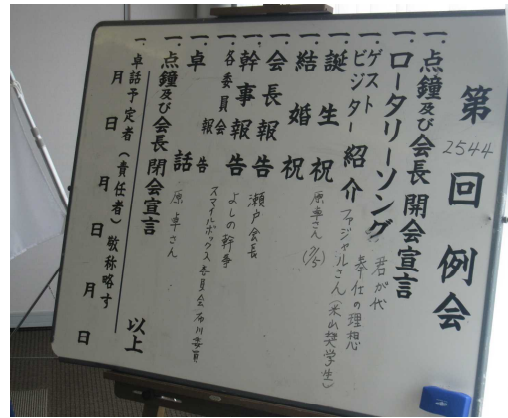 第2544回 例会
一. 点鐘及び会長開会宣言
一. ロータリーソング 君が代 奉仕の理想
一. ゲスト ビジター 紹介 ファジャルさん(米山奨学生)
一. 誕生祝 原卓さん(9/5)
一. 結婚祝
一. 会長報告 瀬戸会長
一. 幹事報告 よしの幹事
一. 各委員会報告 スマイルボックス委員会 布川委員
一. 卓話 原 卓さん
一. 点鐘及び会長閉会宣言
以上
一. 卓話予定者(責任者)敬称略す
月 日 月 日 月 日